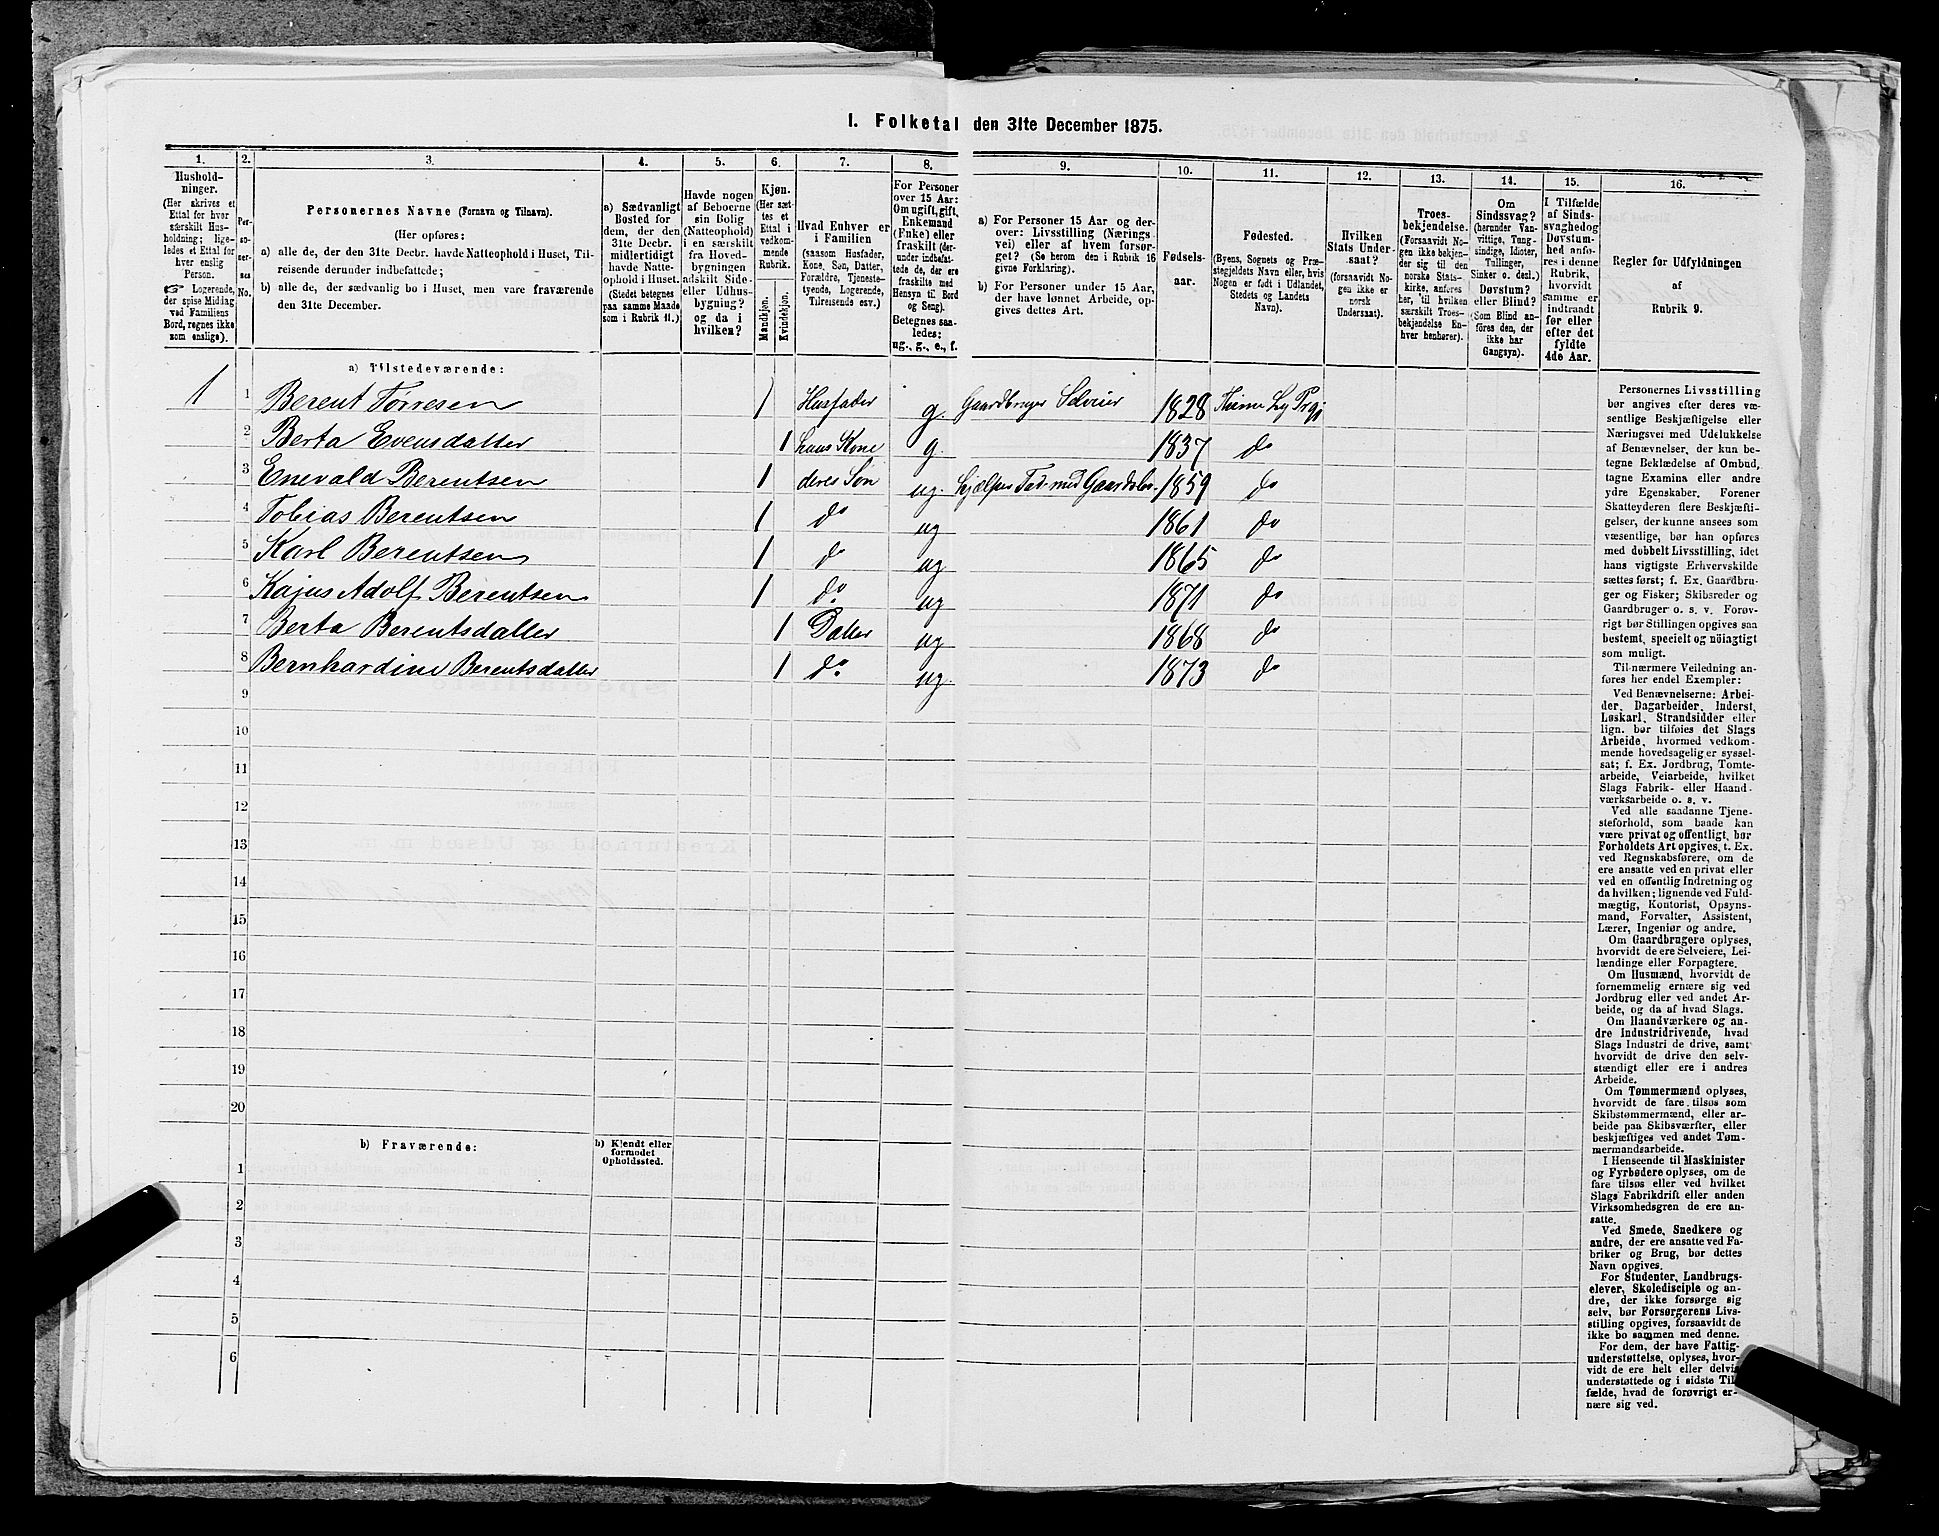 I. Folketal den 31te December 1875.
1. 2. 3. 4. 5. 6. 7. 8. 9. 10. 11. 12. 13. 14. 15. 16.
Hushold-
ninger.
(Her skrives et
Ettal for hver
særskilt Hus-
holdning; lige-
ledes et Ettal for
hver enslig
Person.
☞ Logerende,
der spise Middag
ved Familiens
Bord, regnes ikke
som enslige).
Per-
so-
ner-
nes
No.
Personernes Navne (Fornavn og Tilnavn).
(Her opføres:
a) alle de, der den 31te Decbr. havde Natteophold i Huset, Til-
reisende derunder indbefattede;
b) alle de, der sædvanlig bo i Huset, men vare fraværende
den 31te December.
a) Sædvanligt
Bosted for
dem, der den
31te Decbr.
midlertidigt
havde Natte-
ophold i Huset.
(Stedet betegnes
paa samme Maade
som i Rubrik 11.)
Havde nogen
af Beboerne
sin Bolig
(Natteophold)
i en særskilt
fra Hoved-
bygningen
adskilt Side-
eller Udhus-
bygning?
og da i
hvilken?
Kjøn.
(Her sæt-
tes et
Ettal i
vedkom-
mende
Rubrik.
Mandkjøn.
Kvindekjøn.
Hvad Enhver er
i Familien
(saasom Husfader,
Kone, Søn, Datter,
Forældre, Tjeneste-
tyende, Logerende,
Tilreisende osv.)
For Personer
over 15 Aar:
Om ugift, gift,
Enkemand
(Enke) eller
fraskilt (der-
under indbefat-
tede de, der ere
fraskilte med
Hensyn til Bord
og Seng).
Betegnes saa-
ledes:
ug., g., e., f.
a) For Personer 15 Aar og der-
over: Livsstilling (Nærings-
vei) eller af hvem forsør-
get? (Se herom den i Rubrik 16
givne Forklaring).
b) For Personer under 15 Aar,
der have lønnet Arbeide, op-
gives dettes Art.
Fødsels-
aar.
Fødested.
(Byens, Sognets og Præ-
stegjeldets Navn eller, hvis
Nogen er født i Udlandet,
Stedets og Landets
Navn).
Hvilken
Stats Under-
saat?
(forsaavidt No-
gen ikke er
norsk
Undersaat).
Troes-
bekjendelse.
(Forsaavidt No-
gen ikke bekjen-
der sig til den
norske Stats-
kirke, anføres
her, til hvilken
særskilt Troes-
bekjendelse En-
hver henhører).
Om
Sindssvag?
(herunder Van-
vittige, Tung-
sindige, Idioter,
Tullinger,
Sinker o. desl.)
Døvstum?
eller Blind?
(Som Blind an-
føres den, der
ikke har
Gangsyn).
I Tilfælde
af Sinds-
svaghed og
Døvstum-
hed anfø-
res i denne
Rubrik,
hvorvidt
samme er
indtraadt
før eller
efter det
fyldte
4de Aar.
Regler for Udfyldningen
af
Rubrik 9.
a) Tilstedeværende:
1 1 Berent Tørresen 1 Husfader g. Gaardbruger Selveier 1828
2 Berta Evensdatter 1 hans Kone g. 1837 do
3 Enevald Berentsen 1 deres Søn ug. 1859 do
4 Tobias Berentsen 1 do ug 1861 do
5 Karl Berentsen 1 do ug 1865 do
6 Kajus Adolf Berentsen 1 do. ug 1871 do
7 Berta Berentsdatter 1 Datter ug 1868 do
8 Bernhardine Berentsdatter 1 do. ug. 1873 do
9
10
11
12
13
14
15
16
17
18
19
20
b) Fraværende: b) Kjendt eller
formodet
Opholdssted.
1
2
3
4
5
6
Personernes Livsstilling
bør angives efter deres væ-
sentlige Beskjæftigelse eller
Næringsvei med Udelukkelse
af Benævnelser, der kun be-
tegne Beklædelse af Ombud,
tagne Examina eller andre
ydre Egenskaber. Forener
Skatteyderen flere Beskjæfti-
gelser, der kunne ansees som
væsentlige, bør han opføres
med dobbelt Livsstilling, idet
hans vigtigste Erhvervskilde
sættes først; f. Ex. Gaardbru-
ger og Fisker; Skibsreder og
Gaardbruger o. s. v. Forøv-
rigt bør Stillingen opgives saa
bestemt, specielt og nöiagtigt
som muligt.
Til nærmere Veiledning an-
føres her endel Exempler:
Ved Benævnelserne: Arbei-
der, Dagarbeider, Inderst,
Løskarl, Strandsidder eller
lign. bør tilføies det Slags
Arbeide, hvormed vedkom-
mende hovedsagelig er syssel-
sat; f. Ex. Jordbrug, Tomte-
arbeide, Veiarbeide, hvilket
Slags Fabrik- eller Haand-
værksarbeide o. s. v.
Ved alle saadanne Tjene-
steforhold, som baade kan
være privat og offentligt, bør
Forholdets Art opgives, t. Ex.
ved Regnskabsførere, om de
ere ansatte ved en privat eller
ved en offentlig Indretning og
da hvilken; lignende ved Fuld-
mægtig, Kontorist, Opsyns-
mand, Forvalter, Assistent,
Lærer, Ingeniør og andre.
Om Gaardbrugere oplyses,
hvorvidt de ere Selveiere, Lei-
lændinge eller Forpagtere.
Om Husmænd, hvorvidt de
fornemmelig ernære sig ved
Jordbrug eller ved andet Ar-
beide, og da af hvad Slags.
Om Haandværkere og an-
dre Industridrivende, hvad
Slags Industri de drive, samt
hvorvidt de drive den selv-
stændigt eller ere i andres
Arbeide.
Om Tømmermænd oplyses,
hvorvidt de fare tilsøs som
Skibstømmermænd, eller ar-
beide paa Skibsværfter, eller
beskjæftiges ved andet Tøm-
mermandsarbeide.
I Henseende til Maskinister
og Fyrbødere oplyses, om de
fare tilsøs eller ved hvilket
Slags Fabrikdrift eller anden
Virksomhedsgren de ere an-
satte.
Ved Smede, Snedkere og
andre, der ere ansatte ved Fa-
briker og Brug, bør dettes
Navn opgives.
For Studenter, Landbrugs-
elever, Skoledisciple og an-
dre, der ikke forsørge sig
selv, bør Forsørgerens Livs-
stilling opgives, forsaavidt de
ikke bo sammen med denne.
For dem, der have Fattig-
understøttelse, oplyses, hvor-
vidt de ere helt eller delvis
understøttede og i sidste Til-
fælde, hvad de forøvrigt er-
nære sig ved.